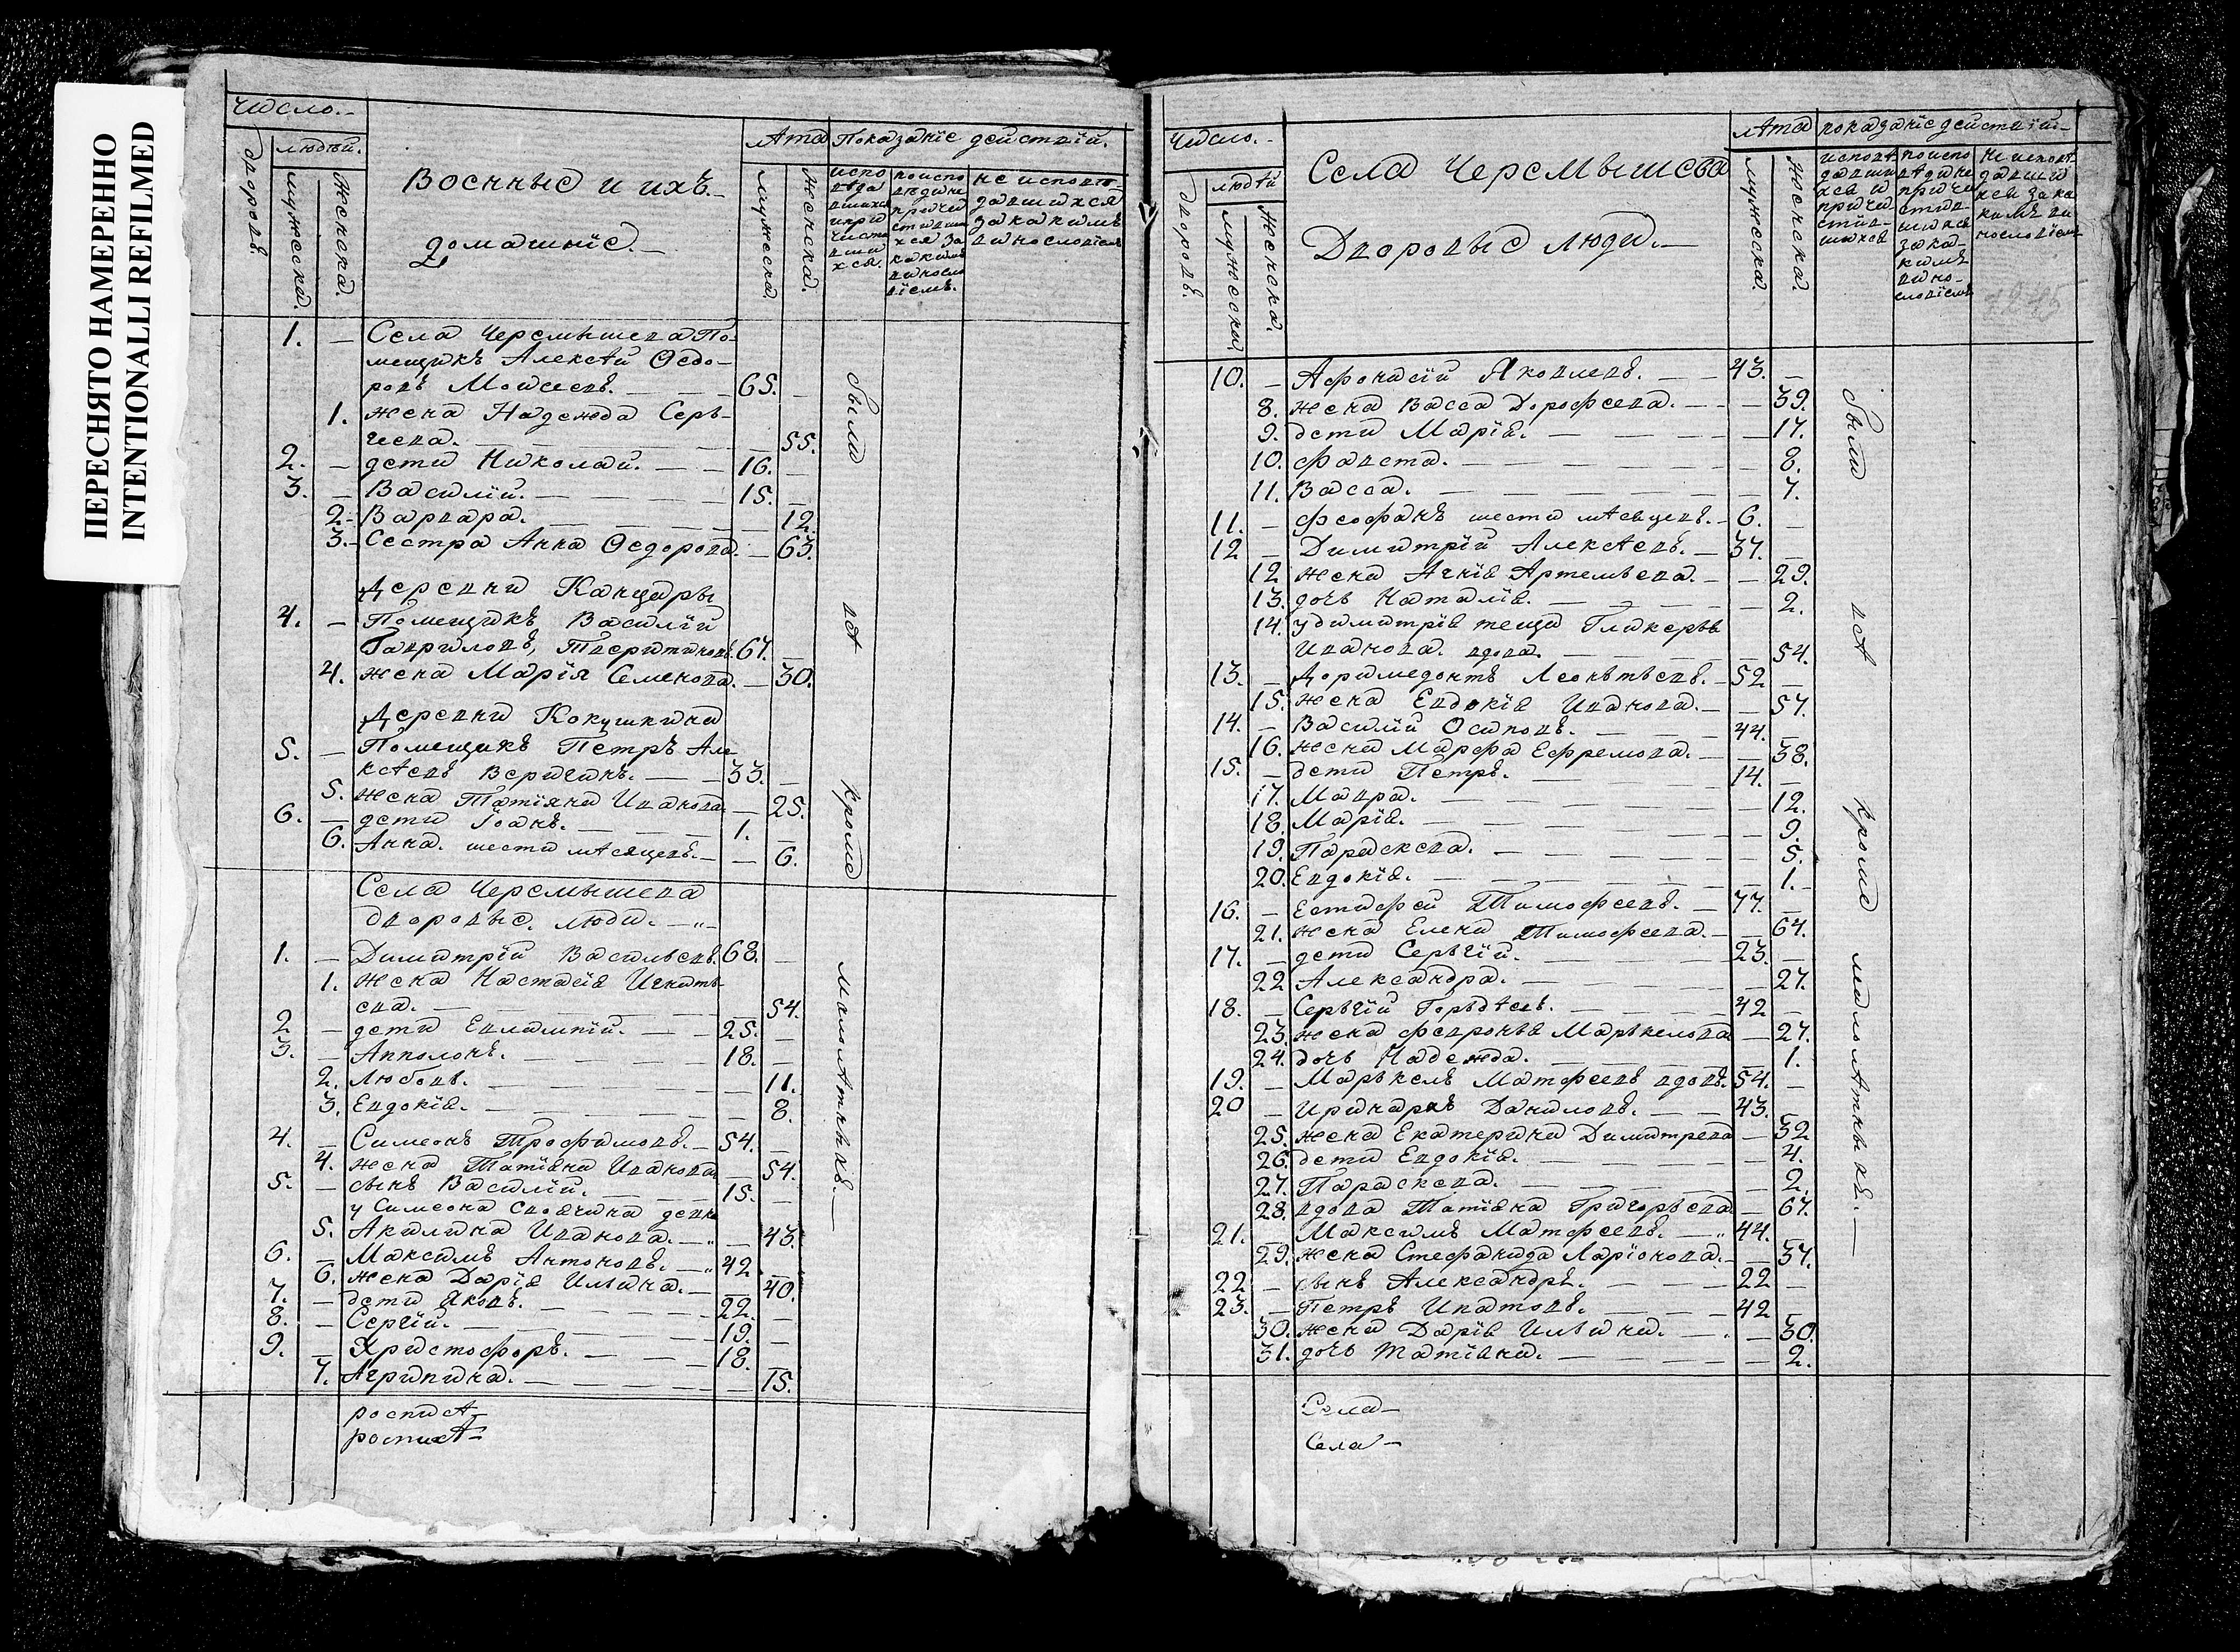 ПЕРЕСНЯТО НАМЕРЕННО
INTENTIONALLI REFILMED
Число.-
дворовъ
людей.
мужеска.
женска.
Военные и ихъ
домашніе.
лѣта
мужеска.
женска.
Показаніе действій.
испо
вѣда
вшихся
и при
часта
вши
хся.
по испо
вѣди не
причи
стивши
хся за
какимъ
виносло
віемъ.
не исповѣ
давшихся
за какимъ
винословіемъ
1. – Села Черемышева По-
мещикъ Алексѣй Ѳедо-
ровъ Моисеевъ. 65. –
1. жена Надежда Серь-
геева. – 55.
2. – дети Николай. 16. –
3. – Василій. 15. –
2. Варвара. – 12.
3. Сестра Анна Ѳедорова. – 63.
Деревни Канцары
4. – Помещикъ Василій
Гавриловъ, Тверитиновъ. 67. –
4. жена Марія Семенова. – 30.
Деревни Кокушкина
5. – Помещикъ Петръ Але
ксѣевъ Веригинъ. 33. –
5. жена Татіяна Иванова – 25.
6. – дети Іоанъ. 1. –
6. Анна. шести мѣсяцевъ. – 6.
Села Черемышева
дворовые люди.
1. – Димитрій Васильевъ. 68. –
1. жена Настасія Игнать
ева. – 54.
2 – дети Евлампій. 25. –
3. – Апполонъ. 18. –
2. Любовь. – 11.
3. Евдокія. – 8.
4. – Симеонъ Трофимовъ. 54. –
4. жена Татіана Иванова – 54.
5. – сынъ Василій. 15. –
у Симеона своячина девка
5. Акилина Иванова. – 43.
6. – Максимъ Антоновъ. 42 –
6. жена Дарія Ильина. – 40.
7. – дети Яковъ. 22. –
8. – Сергій. 19. –
9. – Христофоръ. 18. –
7. Агрипина. – 15.
были всѣ кроме малолѣтныхъ.
роспис
роспис
Число.-
дворовъ.
людей
мужески
женска.
Села Черемышева
Дворовые люди.
лѣта
мужеска.
женска.
показаніе действій
исповѣ
давши
хся и
причи
стив-
шихся
по испо
вѣди не
причи
стив-
шихся
за ка-
кимъ
вино-
словіемъ
не исповѣ
давши
хся за ка
кимъ ви
нословіемъ
10. – Афонасій Яковлевъ. 43. –
8. жена Васса Дорофеева. – 39.
9. дети Марія. – 17.
10. Фавста. – 8.
11. Васса. – 7.
11. – Феофанъ шести мѣсяцевъ. 6. –
12 – Димитрій Алексѣевъ. 37. –
12 жена Агнія Артемьева. – 29.
13. дочь Наталія. – 2.
14. у димитрія теща Гликерья
Иванова. вдова. – 54.
13. – Доримедонтъ Леонтьевъ. 52 –
15. жена Евдокія Иванова. – 57.
14. – Василій Осиповъ. 44. –
16. жена Марфа Ефремова. – 38.
15. – дети Петръ. 14. –
17. Мавра. – 12.
18. Марія. – 9.
19. Параскева. – 5.
20. Евдокія. – 1.
16. – Естифей Тимофеевъ. 77. –
21. жена Елена Тимофеева. – 64.
17. – дети Серьгій. 23. –
22 Александра. – 27.
18. – Серьгій Горьдѣевъ. 42 –
23. жена Февронья Марькелова – 27.
24. дочь Надежда. – 1.
19. – Марькелъ Матфеевъ вдовъ. 54. –
20 – Иринархъ Даниловъ. 43. –
25. жена Екатерина Димитрева – 32
26. дети Евдокія. – 4.
27. Параскева. – 2.
28. вдова Татіяна Григорьева – 67.
21. – Максимъ Матфеевъ. 44. –
29. жена Стефанида Ларіонова. – 37.
22 – сынъ Александръ. 22 –
23. – Петръ Ипатовъ. 42 –
30. жена Дарія Ильина. – 30.
31. дочь Татіяна. – 2.
были всѣ кроме малолѣтныхъ.
Села
Села